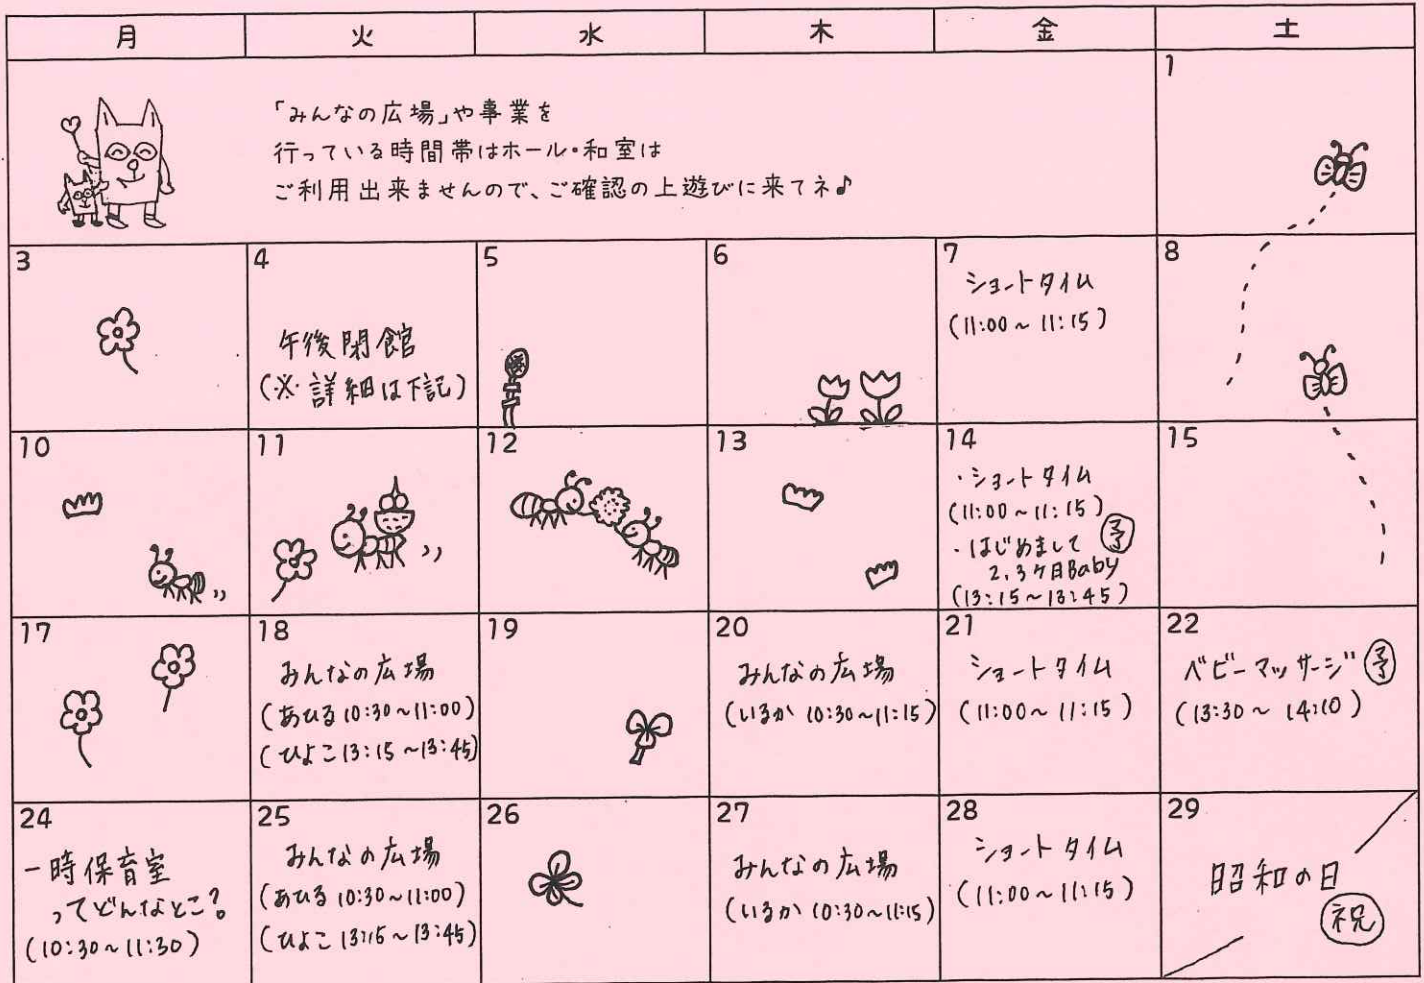 月 火 水 木 金 土
「みんなの広場」や事業を
行っている時間帯はホール・和室は
ご利用出来ませんので、ご確認の上遊びに来てネ♪
1
3
4
午後閉館
(※詳細は下記)
5
6
7
ショートタイム
(11:00～11:15)
8
10
11
12
13
14
・ショートタイム
(11:00～11:15)
・はじめまして 予
2,3ヶ月Baby
(13:15～13:45)
15
17
18
みんなの広場
(あひる 10:30～11:00)
(ひよこ 13:15～13:45)
19
20
みんなの広場
(いるか 10:30～11:15)
21
ショートタイム
(11:00～11:15)
22
ベビーマッサージ 予
(13:30～14:10)
24
一時保育室
ってどんなとこ？
(10:30～11:30)
25
みんなの広場
(あひる 10:30～11:00)
(ひよこ 13:15～13:45)
26
27
みんなの広場
(いるか 10:30～11:15)
28
ショートタイム
(11:00～11:15)
29
昭和の日
祝